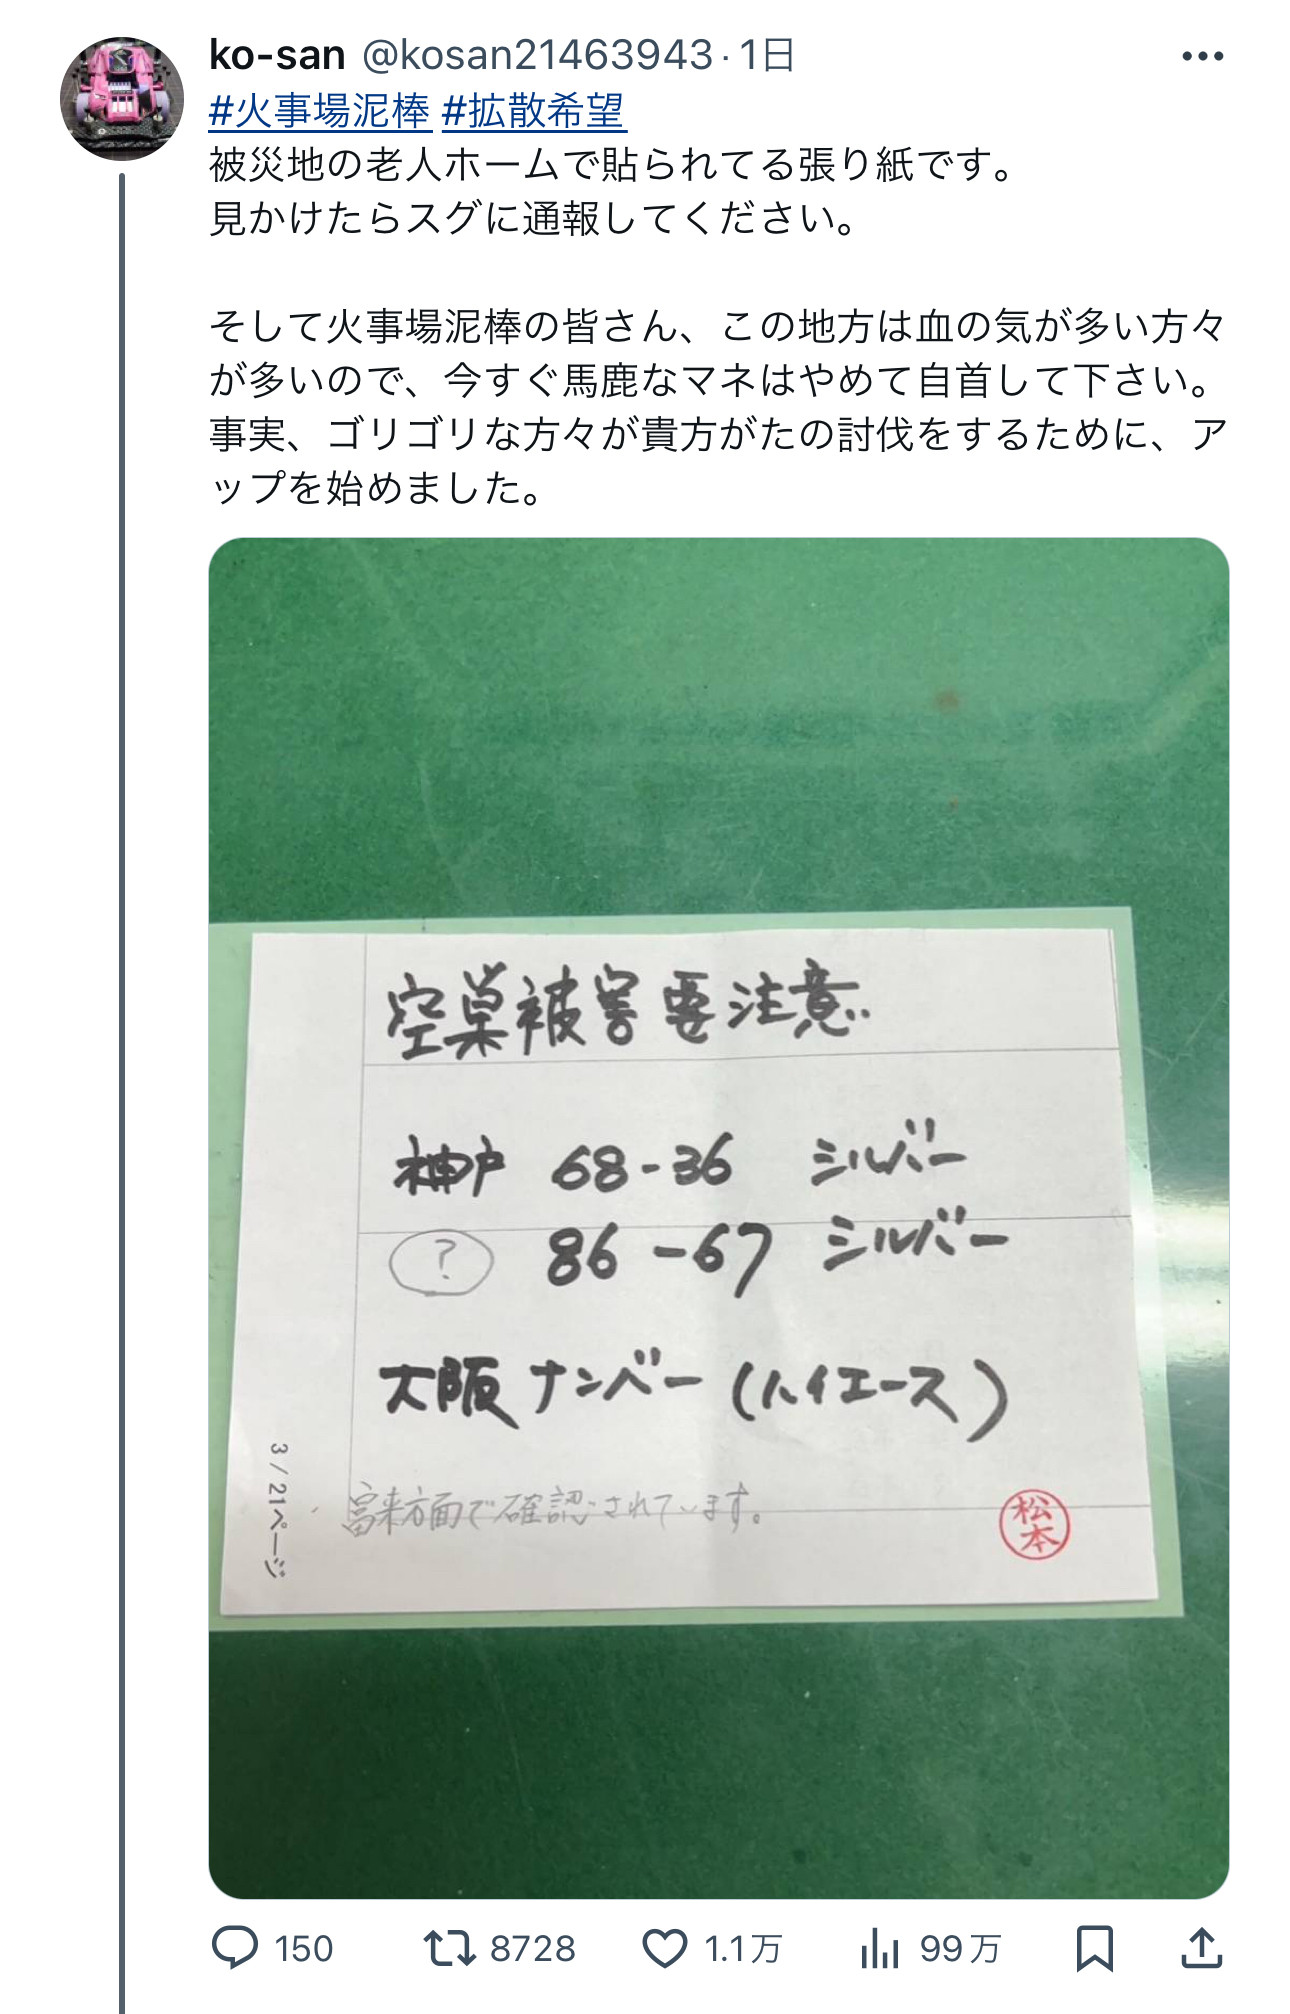 ko-san @kosan21463943 · 1日
#火事場泥棒 #拡散希望
被災地の老人ホームで貼られてる張り紙です。
見かけたらスグに通報してください。
そして火事場泥棒の皆さん、この地方は血の気が多い方々
が多いので、今すぐ馬鹿なマネはやめて自首して下さい。
事実、ゴリゴリな方々が貴方がたの討伐をするために、ア
ップを始めました。
空巣被害要注意
神戸 68-36 シルバー
? 86-67 シルバー
大阪ナンバー (ハイエース)
富来方面で確認されています。
松本
3/21ページ
150 8728 1.1万 99万